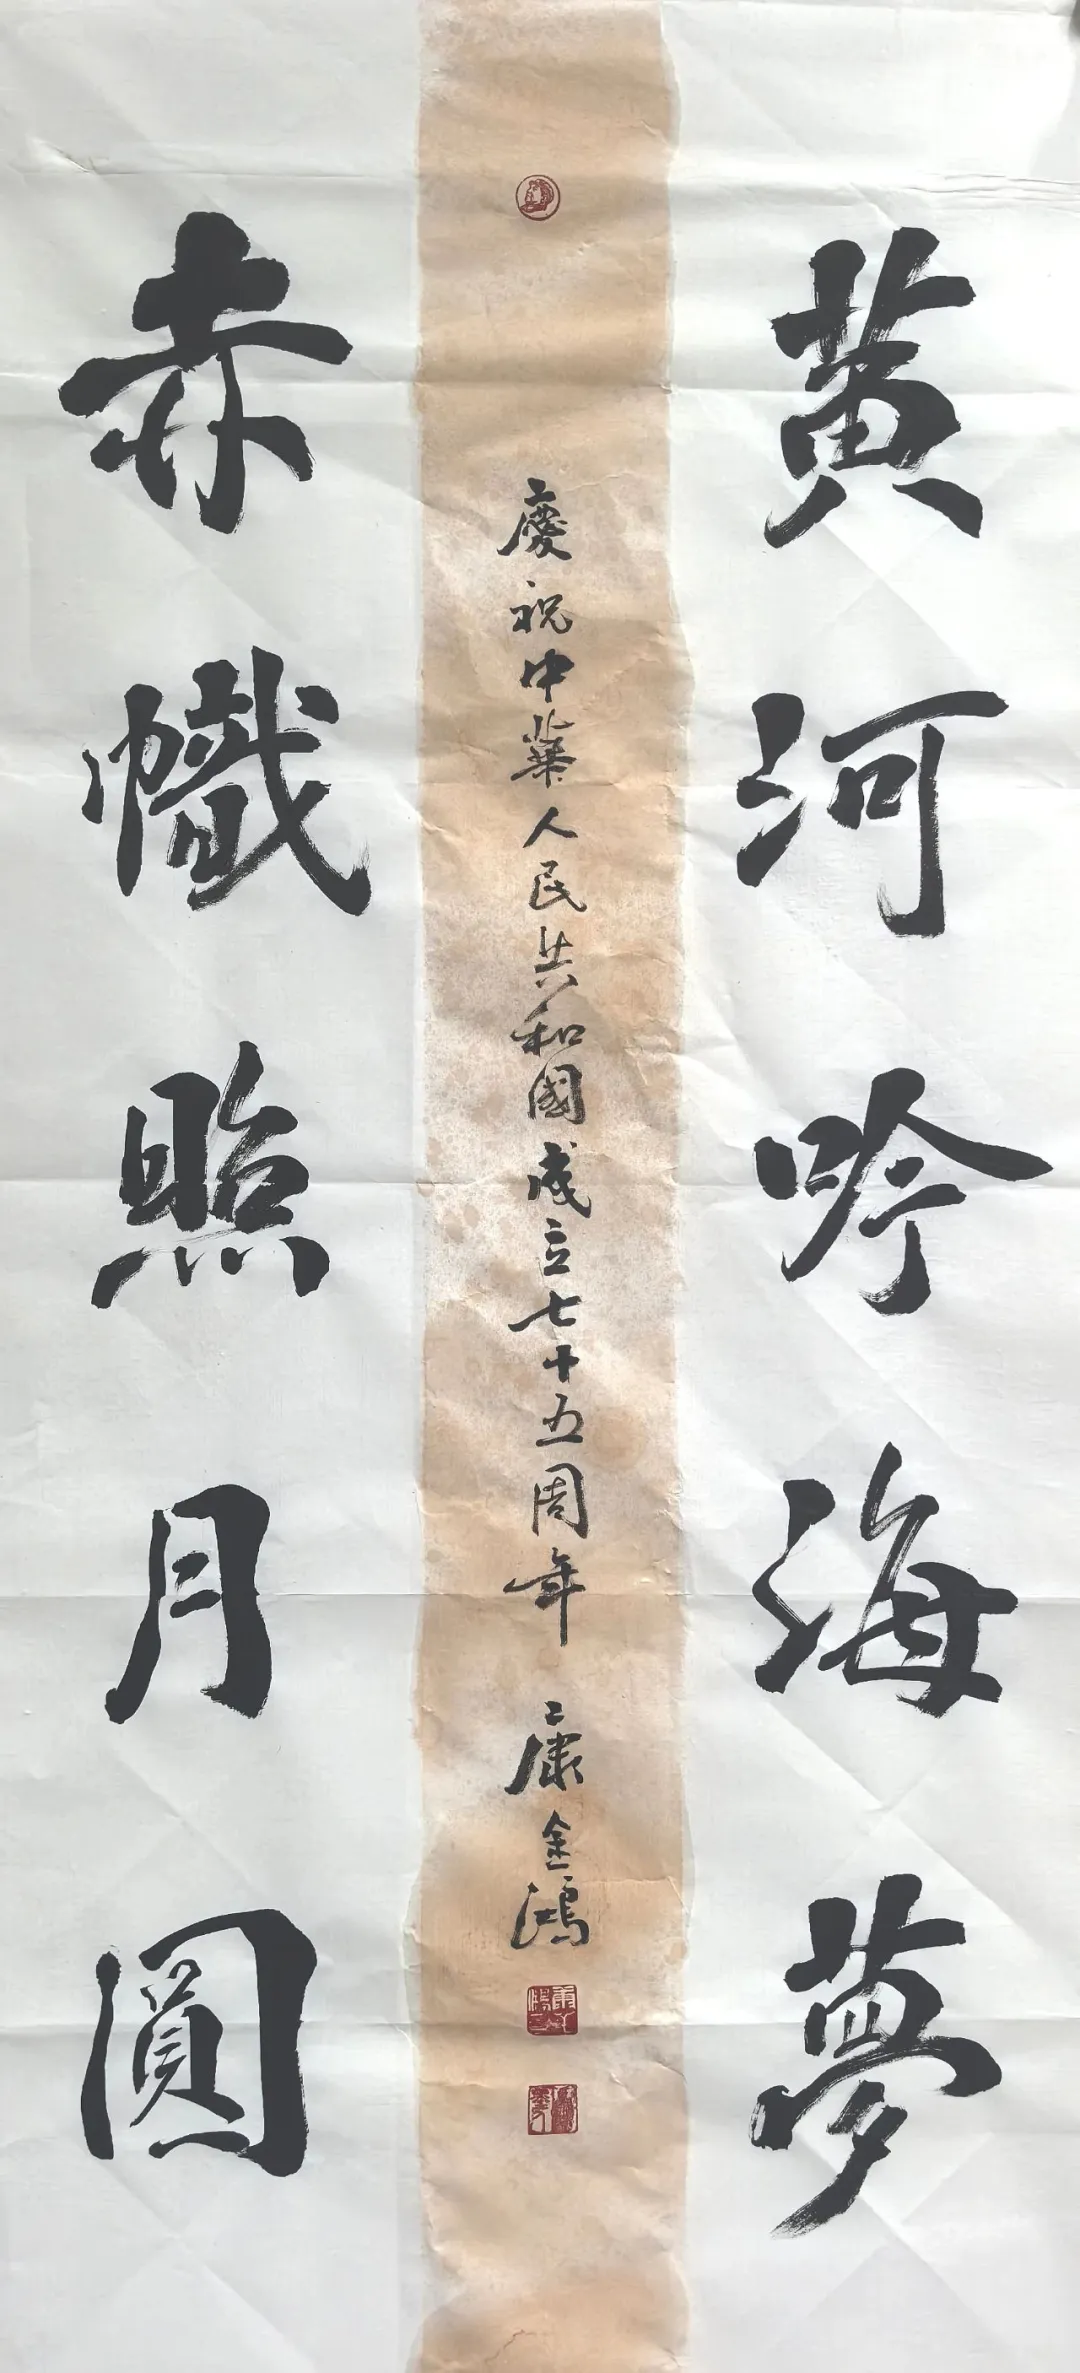 黄河吟海夢
慶祝中華人民共和國成立七十五周年 康金鴻
赤幟照月圓